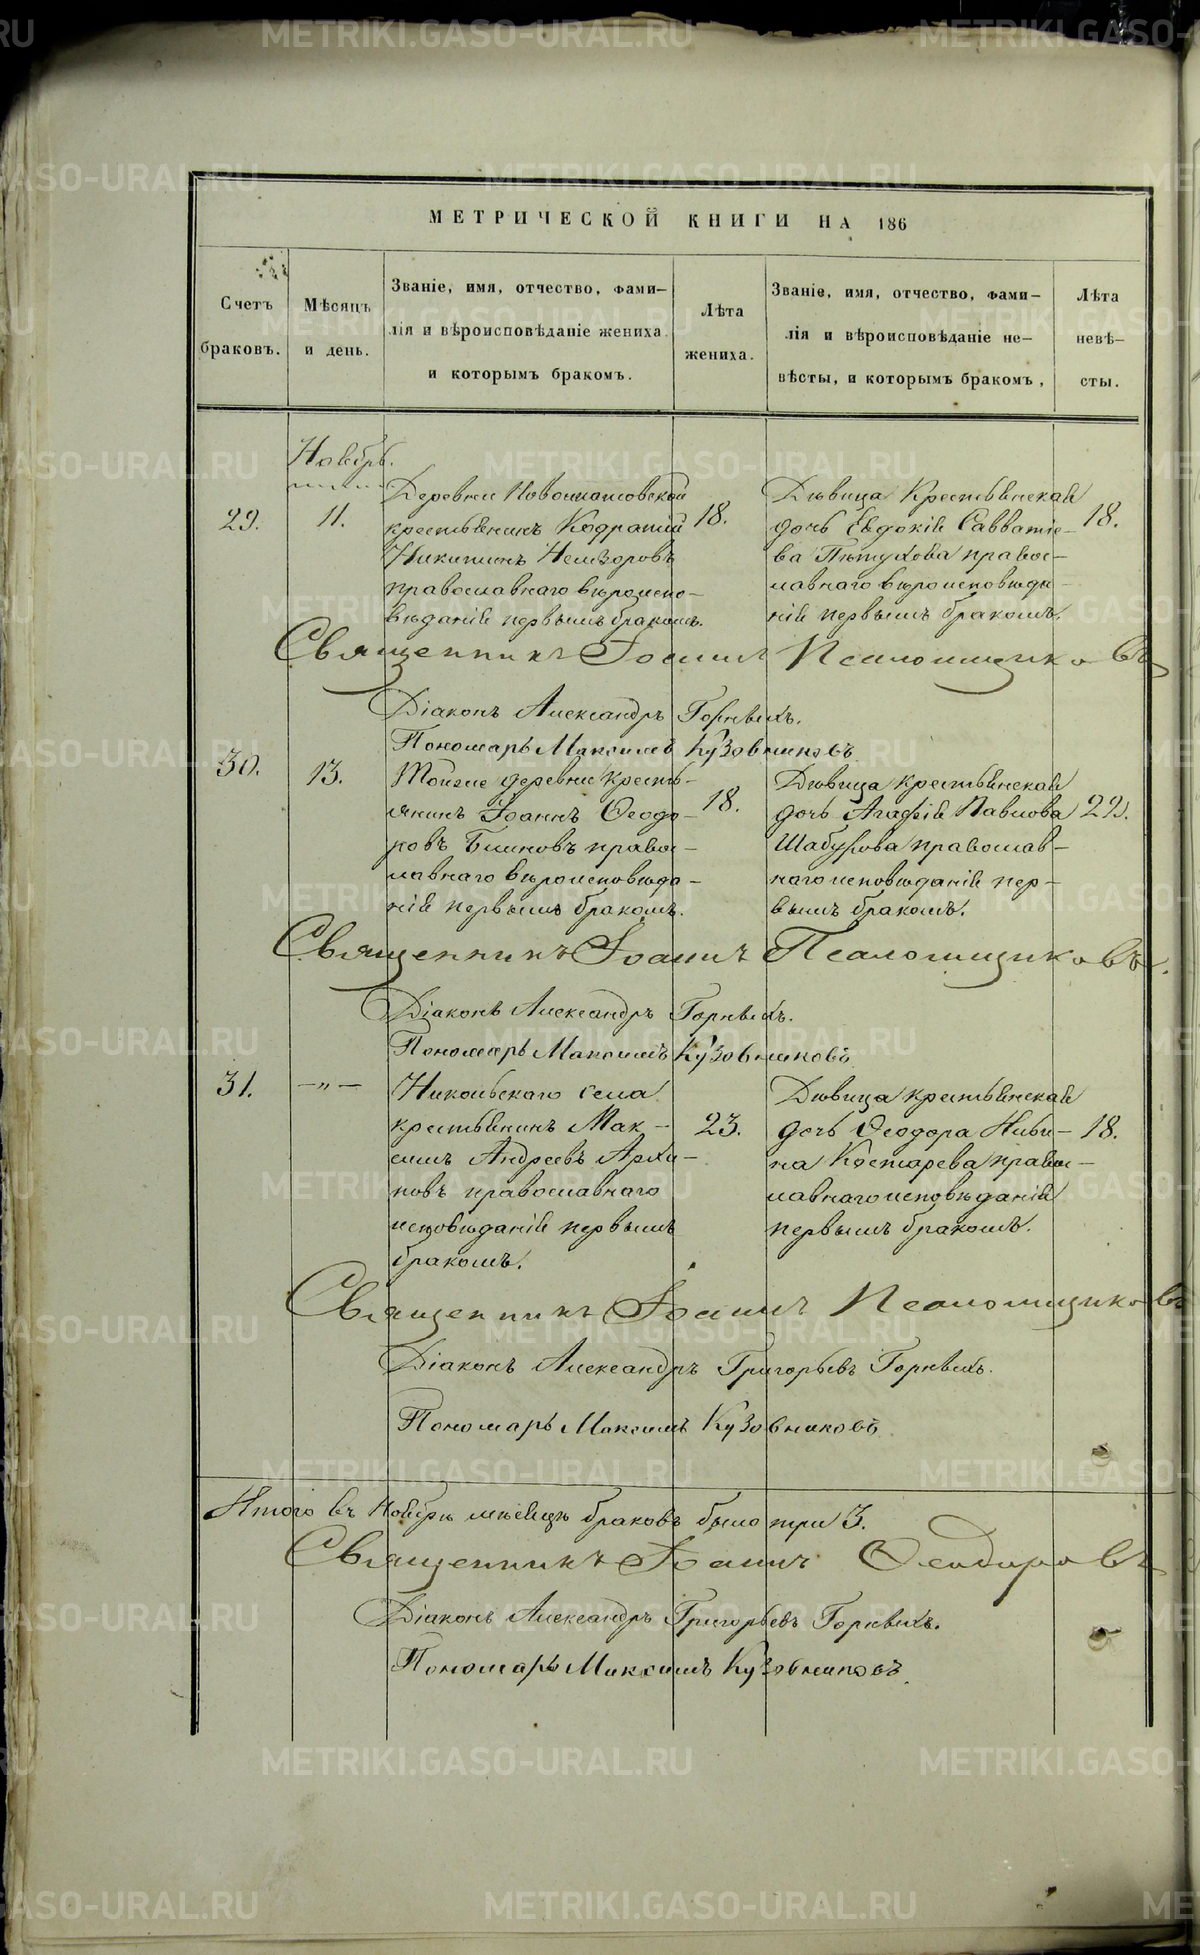 МЕТРИЧЕСКОЙ КНИГИ НА 186
Счетъ браковъ.
Мѣсяцъ и день.
Званіе, имя, отчество, фами-
лія и вѣроисповѣданіе жениха
и которымъ бракомъ.
Лѣта
жениха.
Званіе, имя, отчество, фами-
лія и вѣроисповѣданіе не-
вѣсты, и которымъ бракомъ,
Лѣта
невѣ-
сты.
Ноябрь.
29.
11.
Деревни
крестьянинъ Кодратій
Никитинъ
православнаго вѣроиспо-
вѣданія первымъ бракомъ.
18.
Дѣвица Крестьянская
дочь Евдокія Савватіе-
ва Пѣтухова правос-
лавнаго вѣроисповѣда-
нія первымъ бракомъ.
18.
Священникъ Іоаннъ Псаломщиковъ
Діаконъ Александръ Горныхъ.
Пономарь Максимъ Кузовниковъ
30.
13.
Тойже деревни кресть-
янинъ Іоаннъ Ѳеодо-
ровъ Блиновъ правос-
лавнаго вѣроисповѣда-
нія первымъ бракомъ.
18.
Дѣвица крестьянская
дочь Агафія Павлова
Шабухова православ-
наго исповѣданія пер-
вымъ бракомъ.
22.
Священникъ Іоаннъ Псаломщиковъ.
Діаконъ Александръ Горныхъ.
Пономарь Максимъ Кузовниковъ
31.
—„—
Никольскаго села
крестьянинъ Мак-
симъ Андреевъ Архи-
повъ православнаго
исповѣданія первымъ
бракомъ.
23.
Дѣвица крестьянская
дочь Ѳеодора
на Костарева правос-
лавнаго исповѣданія
первымъ бракомъ.
18.
Священникъ Іоаннъ Псаломщиковъ
Діаконъ Александръ Григорьевъ Горныхъ.
Пономарь Максимъ Кузовниковъ
Итого въ Ноябрѣ мѣсяцѣ браковъ было три 3.
Священникъ Іоаннъ Ѳеодоровъ
Діаконъ Александръ Григорьевъ Горныхъ.
Пономарь Максимъ Кузовниковъ
METRIKI.GASO-URAL.RU